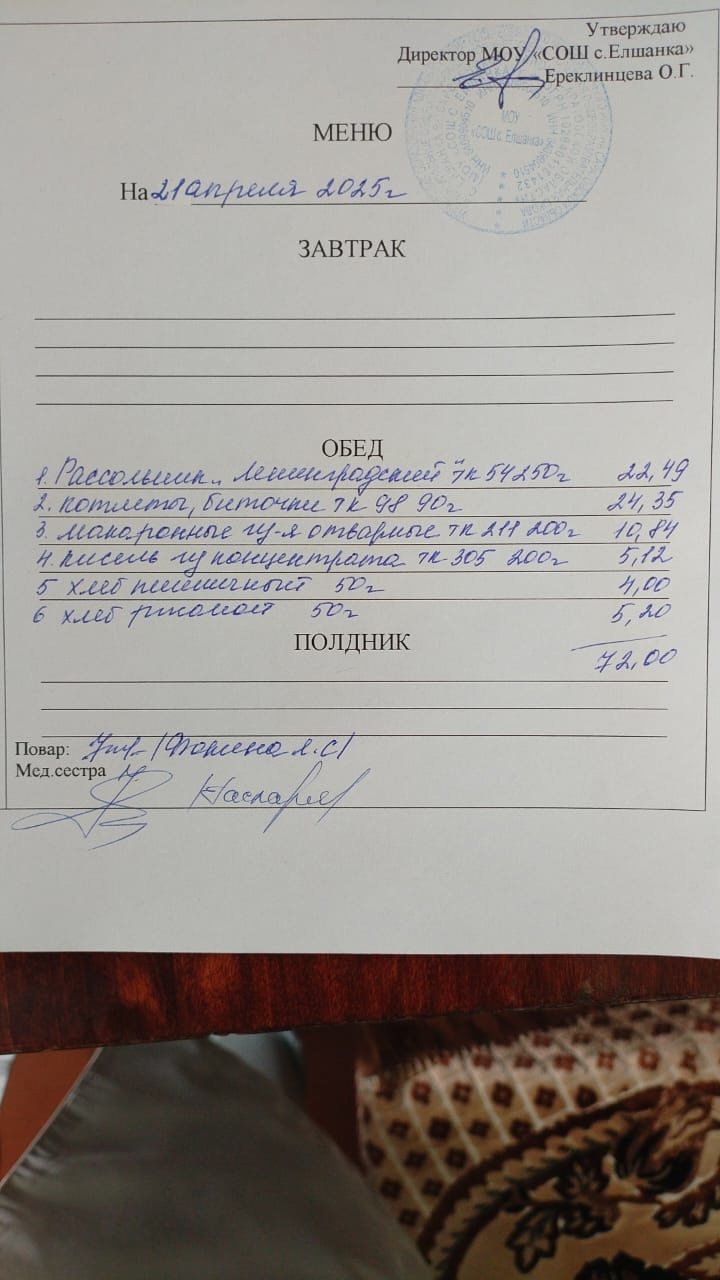 Утверждаю
Директор МОУ «СОШ с.Елшанка»
Ереклинцева О.Г.
МОУ
«СОШ с. Елшанка»
МЕНЮ
На 21 апреля 2025г
ЗАВТРАК
ОБЕД
1. Рассольник „Ленинградский" тк 54 250г 22,49
2. котлеты, биточки тк 98 90г 24,35
3. макаронные из-я отварные тк 211 200г 10,84
4. кисель из концентрата тк 305 200г 5,12
5 хлеб пшеничный 50г 4,00
6 хлеб ржаной 50г 5,20
ПОЛДНИК
72,00
Повар:
Мед.сестра